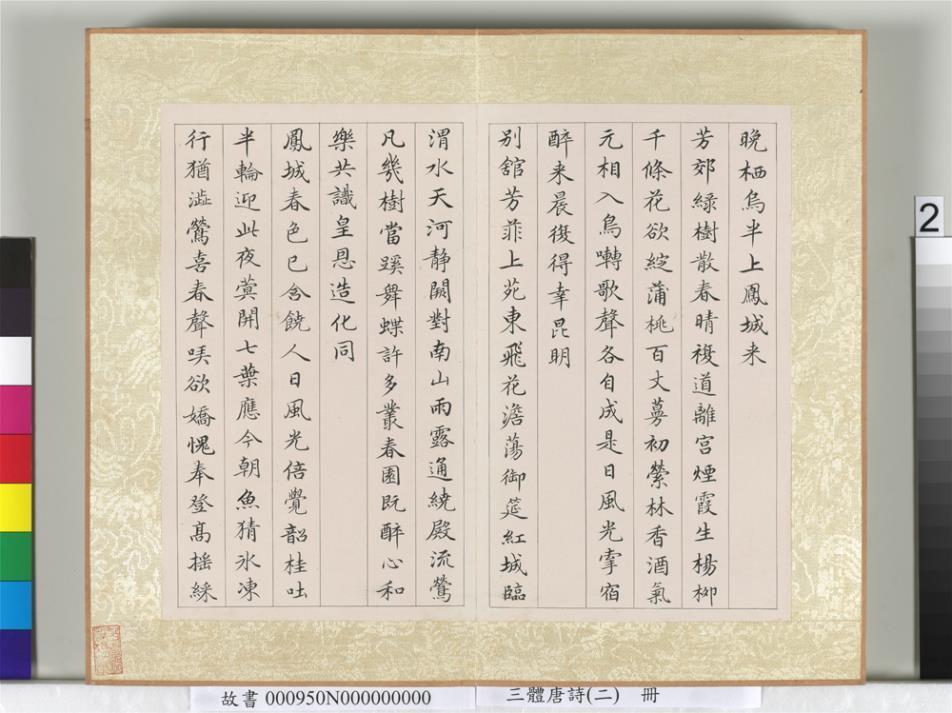 晩栖烏半上鳳城来
芳郊綠樹散春晴複道離宮煙霞生楊柳
千條花欲綻蒲桃百丈蔓初縈林香酒氣
元相入鳥囀歌聲各自成是日風光寧宿
醉来晨復得幸昆明
別舘芳菲上苑東飛花澹蕩御筵紅城臨
渭水天河静闕對南山雨露通繞殿流鶯
凡幾樹當蹊舞蝶許多叢春園既醉心和
樂共識皇恩造化同
鳳城春色已含饒人日風光倍覺韶桂吐
半輪迎此夜蓂開七葉應今朝魚猜氷凍
行猶澁鶯喜春聲欲嬌愧奉登高揺綵
2
故書 000950N000000000
三體唐詩(二) 冊